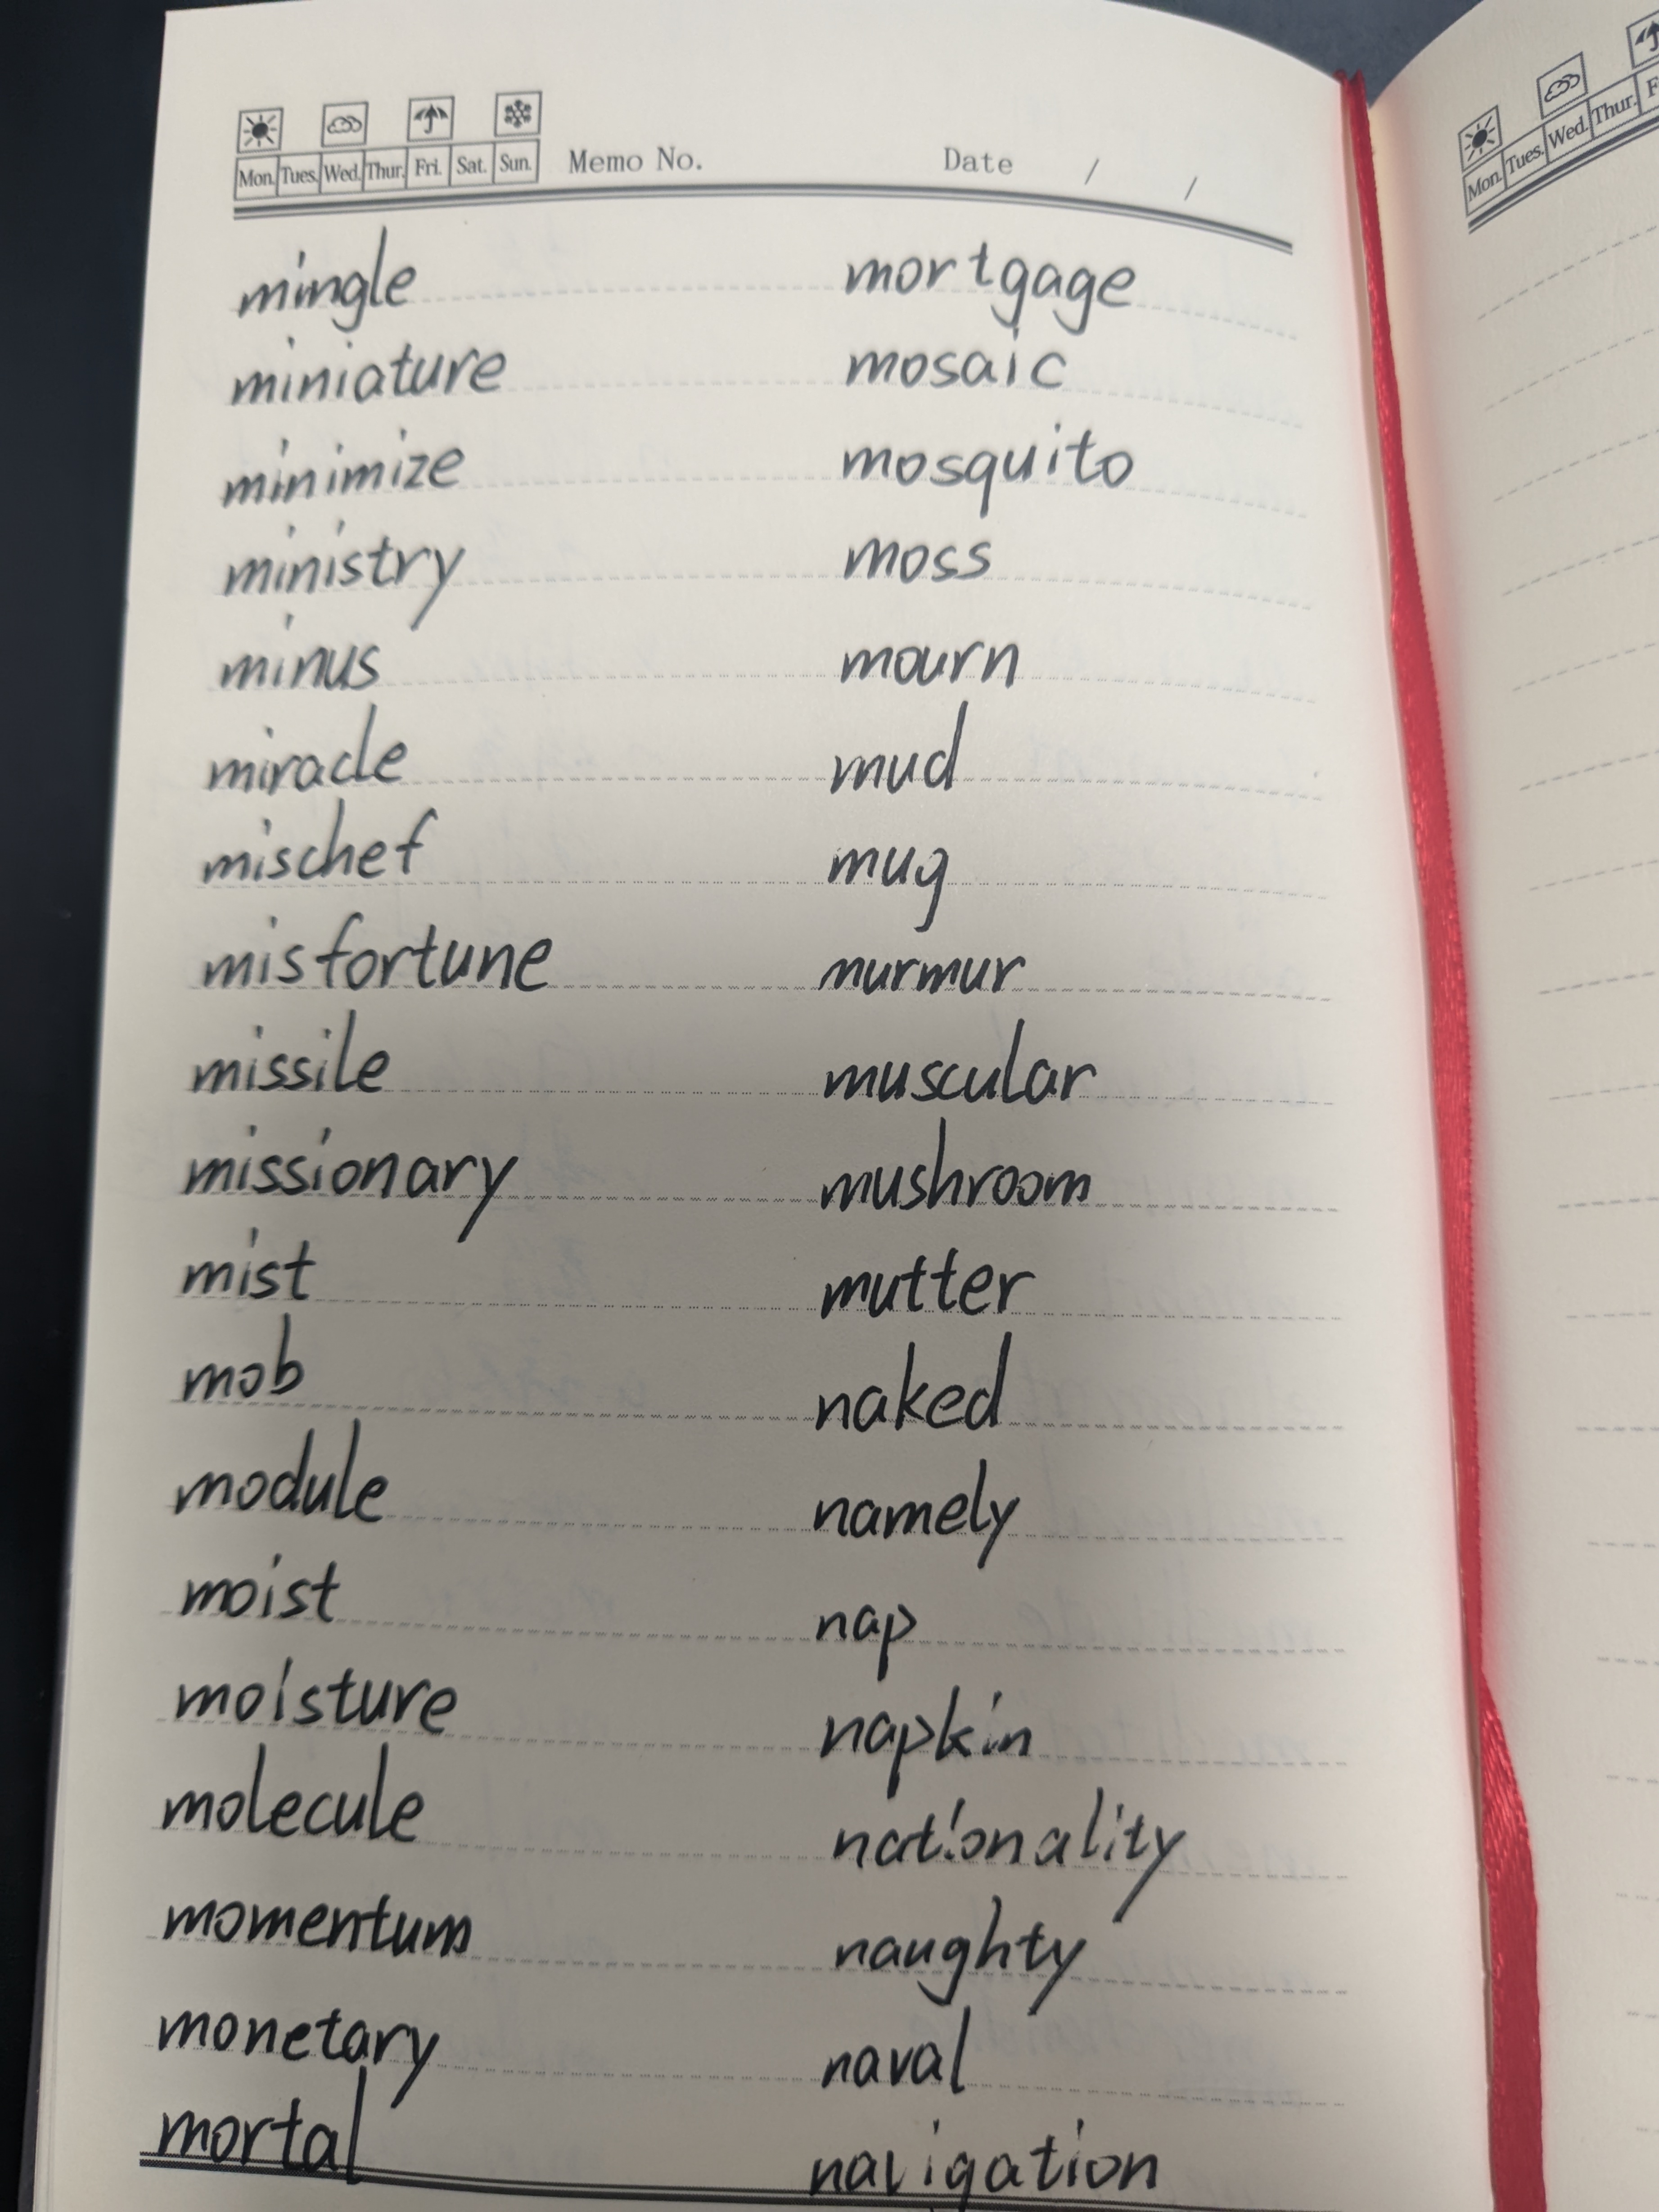 Mon. Tues. Wed. Thur. Fri. Sat. Sun. Memo No. Date / /
mingle
miniature
minimize
ministry
minus
miracle
mischef
misfortune
missile
missionary
mist
mob
module
moist
moisture
molecule
momentum
monetary
mortal
mortgage
mosaic
mosquito
moss
mourn
mud
mug
murmur
muscular
mushroom
mutter
naked
namely
nap
napkin
nationality
naughty
naval
navigation
Mon. Tues. Wed. Thur.